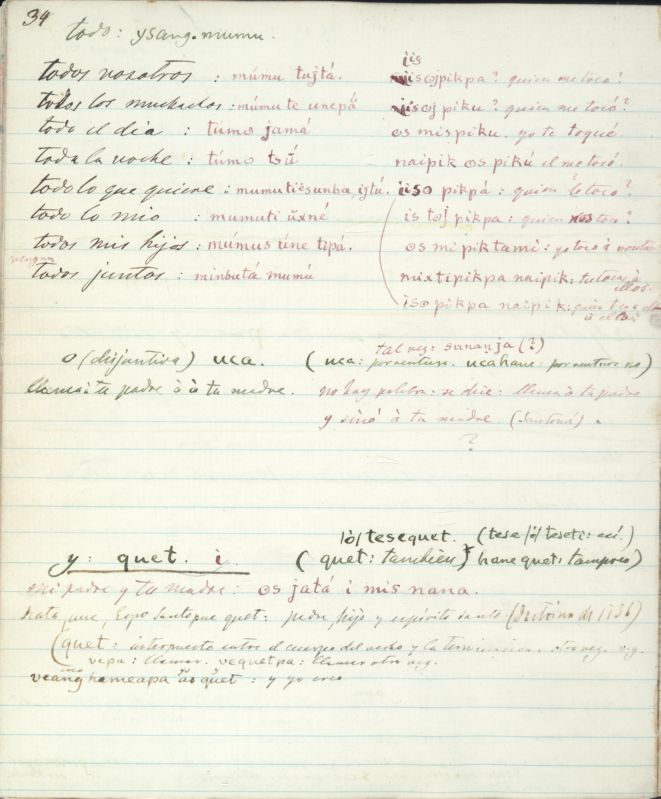 34
todo: ysang. mumu.
todos nosotros : múmu tujtá.
todos los muchachos : múmu te unepä
todo el dia : túmo jamá
toda la noche : túmo tsú
todo lo que quiere : mumuti isunba, ijtú.
todo lo mio : mumuti üxné
todos mis hijos : múmus tíne tipá.
vengan
todos juntos : minbutá mumú
iis
isojpikpa? quien me toca?
isoj piku? quien me tocó?
os mispiku. yo te toqué.
naipik os pikú el me tocó.
iiso pikpá : quien le toca?
is toj pikpa : quien nos toca?
os mi piktami : yo toco á
nuxtipikpa naipik : tu tocas á ellos.
isopikpa naipik : quien toca á ellos.
o (disjuntiva) uca. (uca: por ventura. ucahane: por ventura no)
tal vez: sunanja (?)
llama á tu padre ó á tu madre. no hay palabra: se dice: llama á tu padre
y sinó á tu madre. (Santomé).
?
y : quet. i (quet: tambien) hanequet: tampoco)
/ó/ tesequet. (tese /ó/ teseti: así.)
mi padre y tu madre: os jatá i mis nana.
Jata, une, Espo Santo quet: padre, hijo y espíritu santo (Doctrina de 1736)
(quet: interpuesto entre el cuerpo del verbo y la terminacion, otra vez. v.g.
vepa: llamar. vequetpa: llamar otra vez.
veang hameapa äs quet : y yo creo